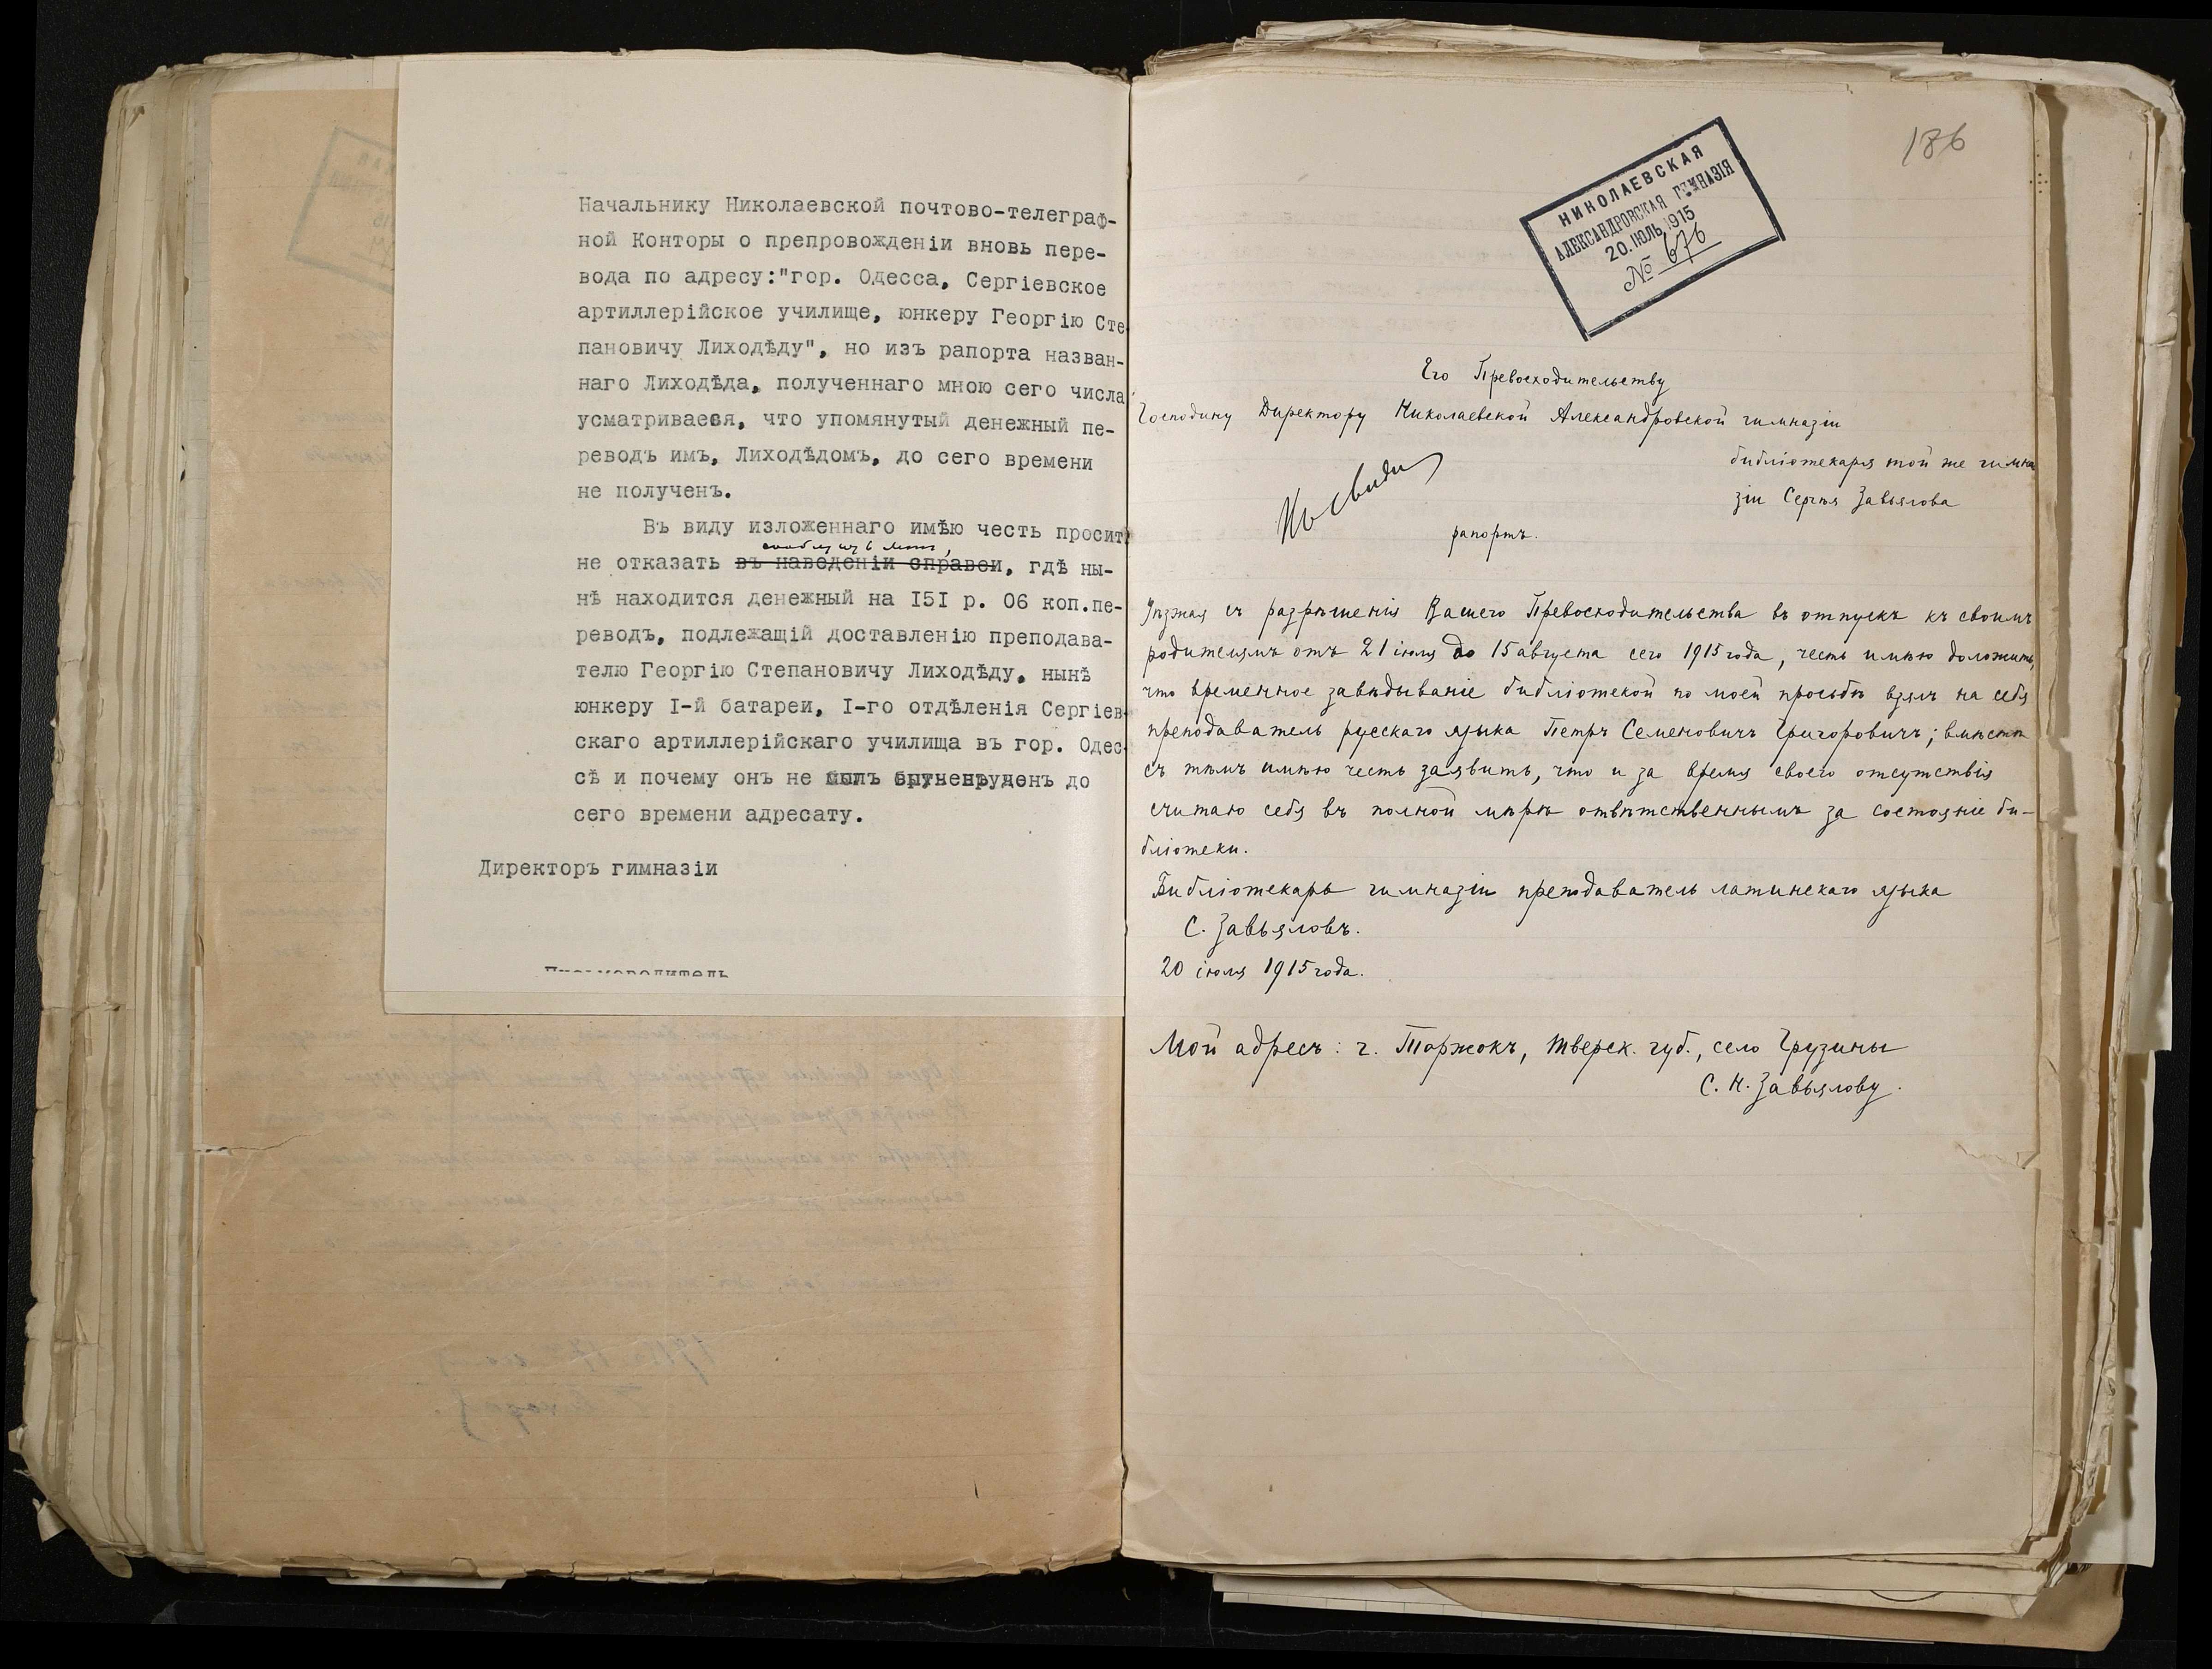 Начальнику Николаевской почтово-телеграф-
ной Конторы о препровожденіи вновь пере-
вода по адресу:"гор. Одесса, Сергіевское
артиллерійское училище, юнкеру Георгію Сте
пановичу Лиходѣду", но изъ рапорта назван-
наго Лиходѣда, полученнаго мною сего числа
усматриваеся, что упомянутый денежный пе-
реводъ имъ, Лиходѣдомъ, до сего времени
не полученъ.
Въ виду изложеннаго имѣю честь просить
не отказать въ наведеніи справки, гдѣ ны-
нѣ находится денежный на I5I р. 06 коп.пе-
реводъ, подлежащій доставленію преподава-
телю Георгію Степановичу Лиходѣду, нынѣ
юнкеру I-й батареи, I-го отдѣленія Сергіев
скаго артиллерійскаго училища въ гор. Одес
сѣ и почему онъ не до
сего времени адресату.
Директоръ гимназіи
Письмоводитель
186
НИКОЛАЕВСКАЯ
АЛЕКСАНДРОВСКАЯ ГИМНАЗІЯ
20.ІЮЛЬ.1915
№ 676
Его Превосходительству
Господину Директору Николаевской Александровской гимназіи
библіотекаря той же гимна
зіи Сергѣя Завьялова
рапортъ.
Уѣзжая съ разрѣшенія Вашего Превосходительства въ отпускъ къ своимъ
родителямъ отъ 21 іюля до 15 августа сего 1915 года, честь имѣю доложить,
что временное завѣдываніе библіотекой по моей просьбѣ взялъ на себя
преподаватель русскаго языка Петръ Семеновичъ Григоровичъ; вмѣстѣ
съ тѣмъ имѣю честь заявить, что и за время своего отсутствія
считаю себя въ полной мѣрѣ отвѣтственнымъ за состояніе би-
бліотеки.
Библіотекарь гимназіи преподаватель латинскаго языка
С. Завьяловъ.
20 іюля 1915 года.
Мой адресъ: г. Торжокъ, Тверск. губ., село Грузины
С. Н. Завьялову.